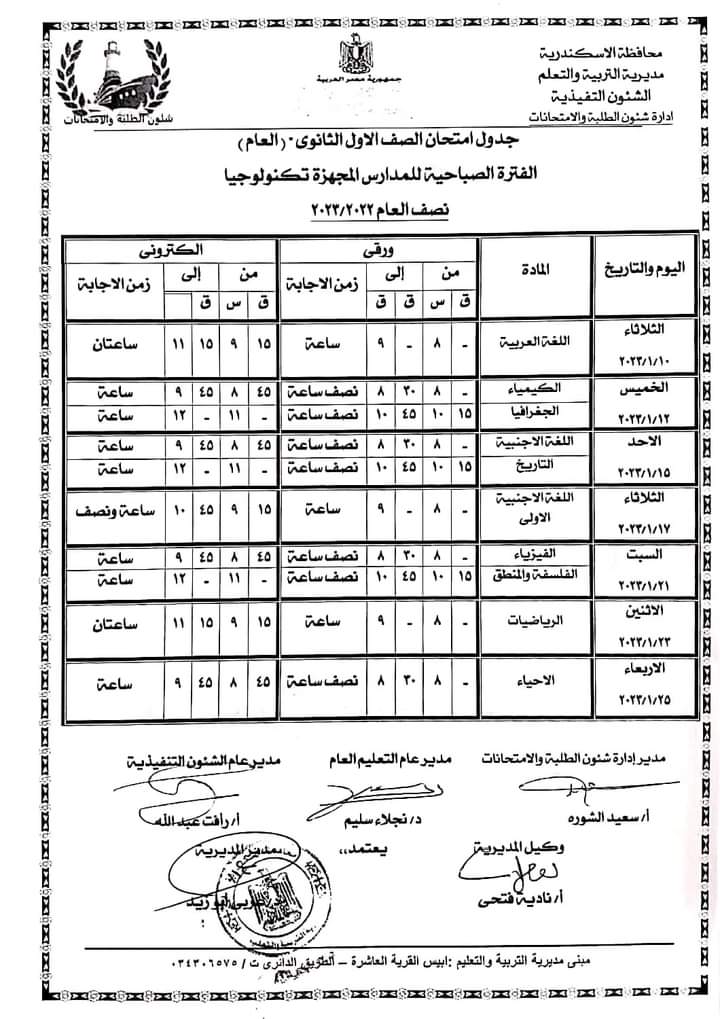 محافظة الاسكندرية
مديرية التربية والتعلم
الشئون التفيذية
إدارة شئون الطلبة والامتحانات
جمهورية مصر العربية
شئون الطلبة والامتحانات
جدول امتحان الصف الاول الثانوى - (العام)
الفترة الصباحية للمدارس المجهزة تكنولوجيا
نصف العام ٢٠٢٣/٢٠٢٢
اليوم والتاريخ المادة ورقى الكترونى
من إلى زمن الاجابة من إلى زمن الاجابة
ق س ق ق ق س ق
الثلاثاء ٢٠٢٣/١/١٠ اللغة العربية - ٨ - ٩ ساعة ١٥ ٩ ١٥ ١١ ساعتان
الخميس ٢٠٢٣/١/١٢ الكيمياء - ٨ ٣٠ ٨ نصف ساعة ٤٥ ٨ ٤٥ ٩ ساعة
الجغرافيا ١٥ ١٠ ٤٥ ١٠ نصف ساعة - ١١ - ١٢ ساعة
الاحد ٢٠٢٣/١/١٥ اللغة الاجنبية - ٨ ٣٠ ٨ نصف ساعة ٤٥ ٨ ٤٥ ٩ ساعة
التاريخ ١٥ ١٠ ٤٥ ١٠ نصف ساعة - ١١ - ١٢ ساعة
الثلاثاء ٢٠٢٣/١/١٧ اللغة الاجنبية الاولى - ٨ - ٩ ساعة ١٥ ٩ ٤٥ ١٠ ساعة ونصف
السبت ٢٠٢٣/١/٢١ الفيزياء - ٨ ٣٠ ٨ نصف ساعة ٤٥ ٨ ٤٥ ٩ ساعة
الفلسفة والمنطق ١٥ ١٠ ٤٥ ١٠ نصف ساعة - ١١ - ١٢ ساعة
الاثنين ٢٠٢٣/١/٢٣ الرياضيات - ٨ - ٩ ساعة ١٥ ٩ ١٥ ١١ ساعتان
الاربعاء ٢٠٢٣/١/٢٥ الاحياء - ٨ ٣٠ ٨ نصف ساعة ٤٥ ٨ ٤٥ ٩ ساعة
مدير إدارة شئون الطلبة والامتحانات مدير عام التعليم العام مدير عام الشئون التنفيذية
أ/ سعيد الشوره د/ نجلاء سليم أ/ رأفت عبد الله
وكيل المديرية يعتمد،، مدير المديرية
أ/ نادية فتحى عربى أبو زيد
مبنى مديرية التربية والتعليم :ابيس القرية العاشرة – الطريق الدائرى ت / ٠٣٤٣٠٦٥٧٥